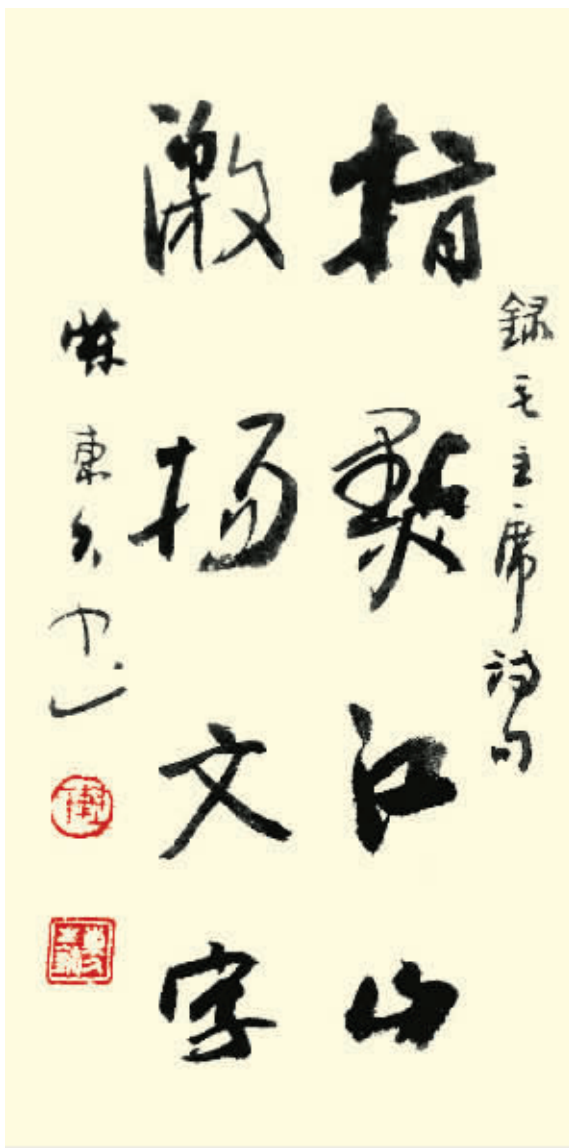 録毛主席诗句
指點江山
激扬文字
東